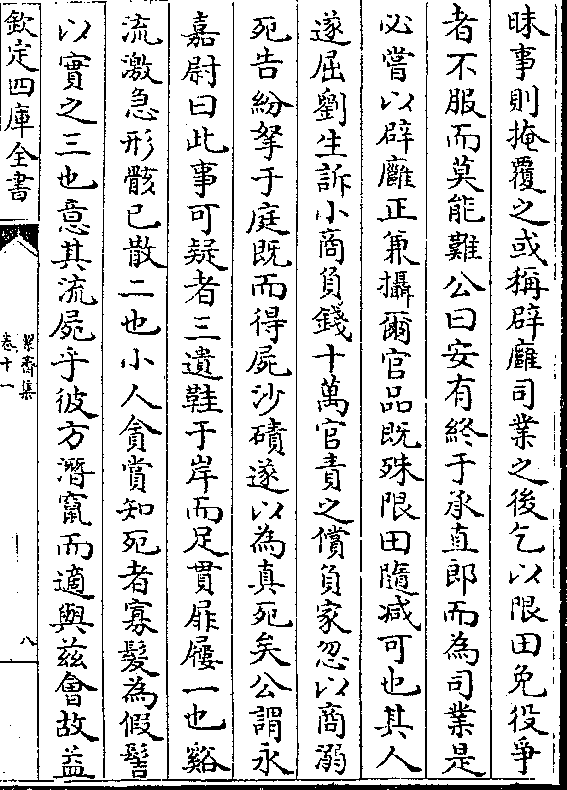 昧事則掩覆之或稱辟廱司業之後乞以限田免役爭
者不服而莫能難公曰安有終于承直郎而為司業是
必嘗以辟廱正兼攝爾官品既殊限田隨减可也其人
遂屈劉生訴小商負錢十萬官責之償負家忽以商溺
死告紛拏于庭既而得屍沙磧遂以為真死矣公謂永
嘉尉曰此事可疑者三遺鞋于岸而足貫屝屨一也谿
流激急形骸已散二也小人貪賞知死者寡髮為假髻
以實之三也意其流屍乎彼方潛竄而適與兹會故益
欽定四庫全書
絜齋集
卷十一
八